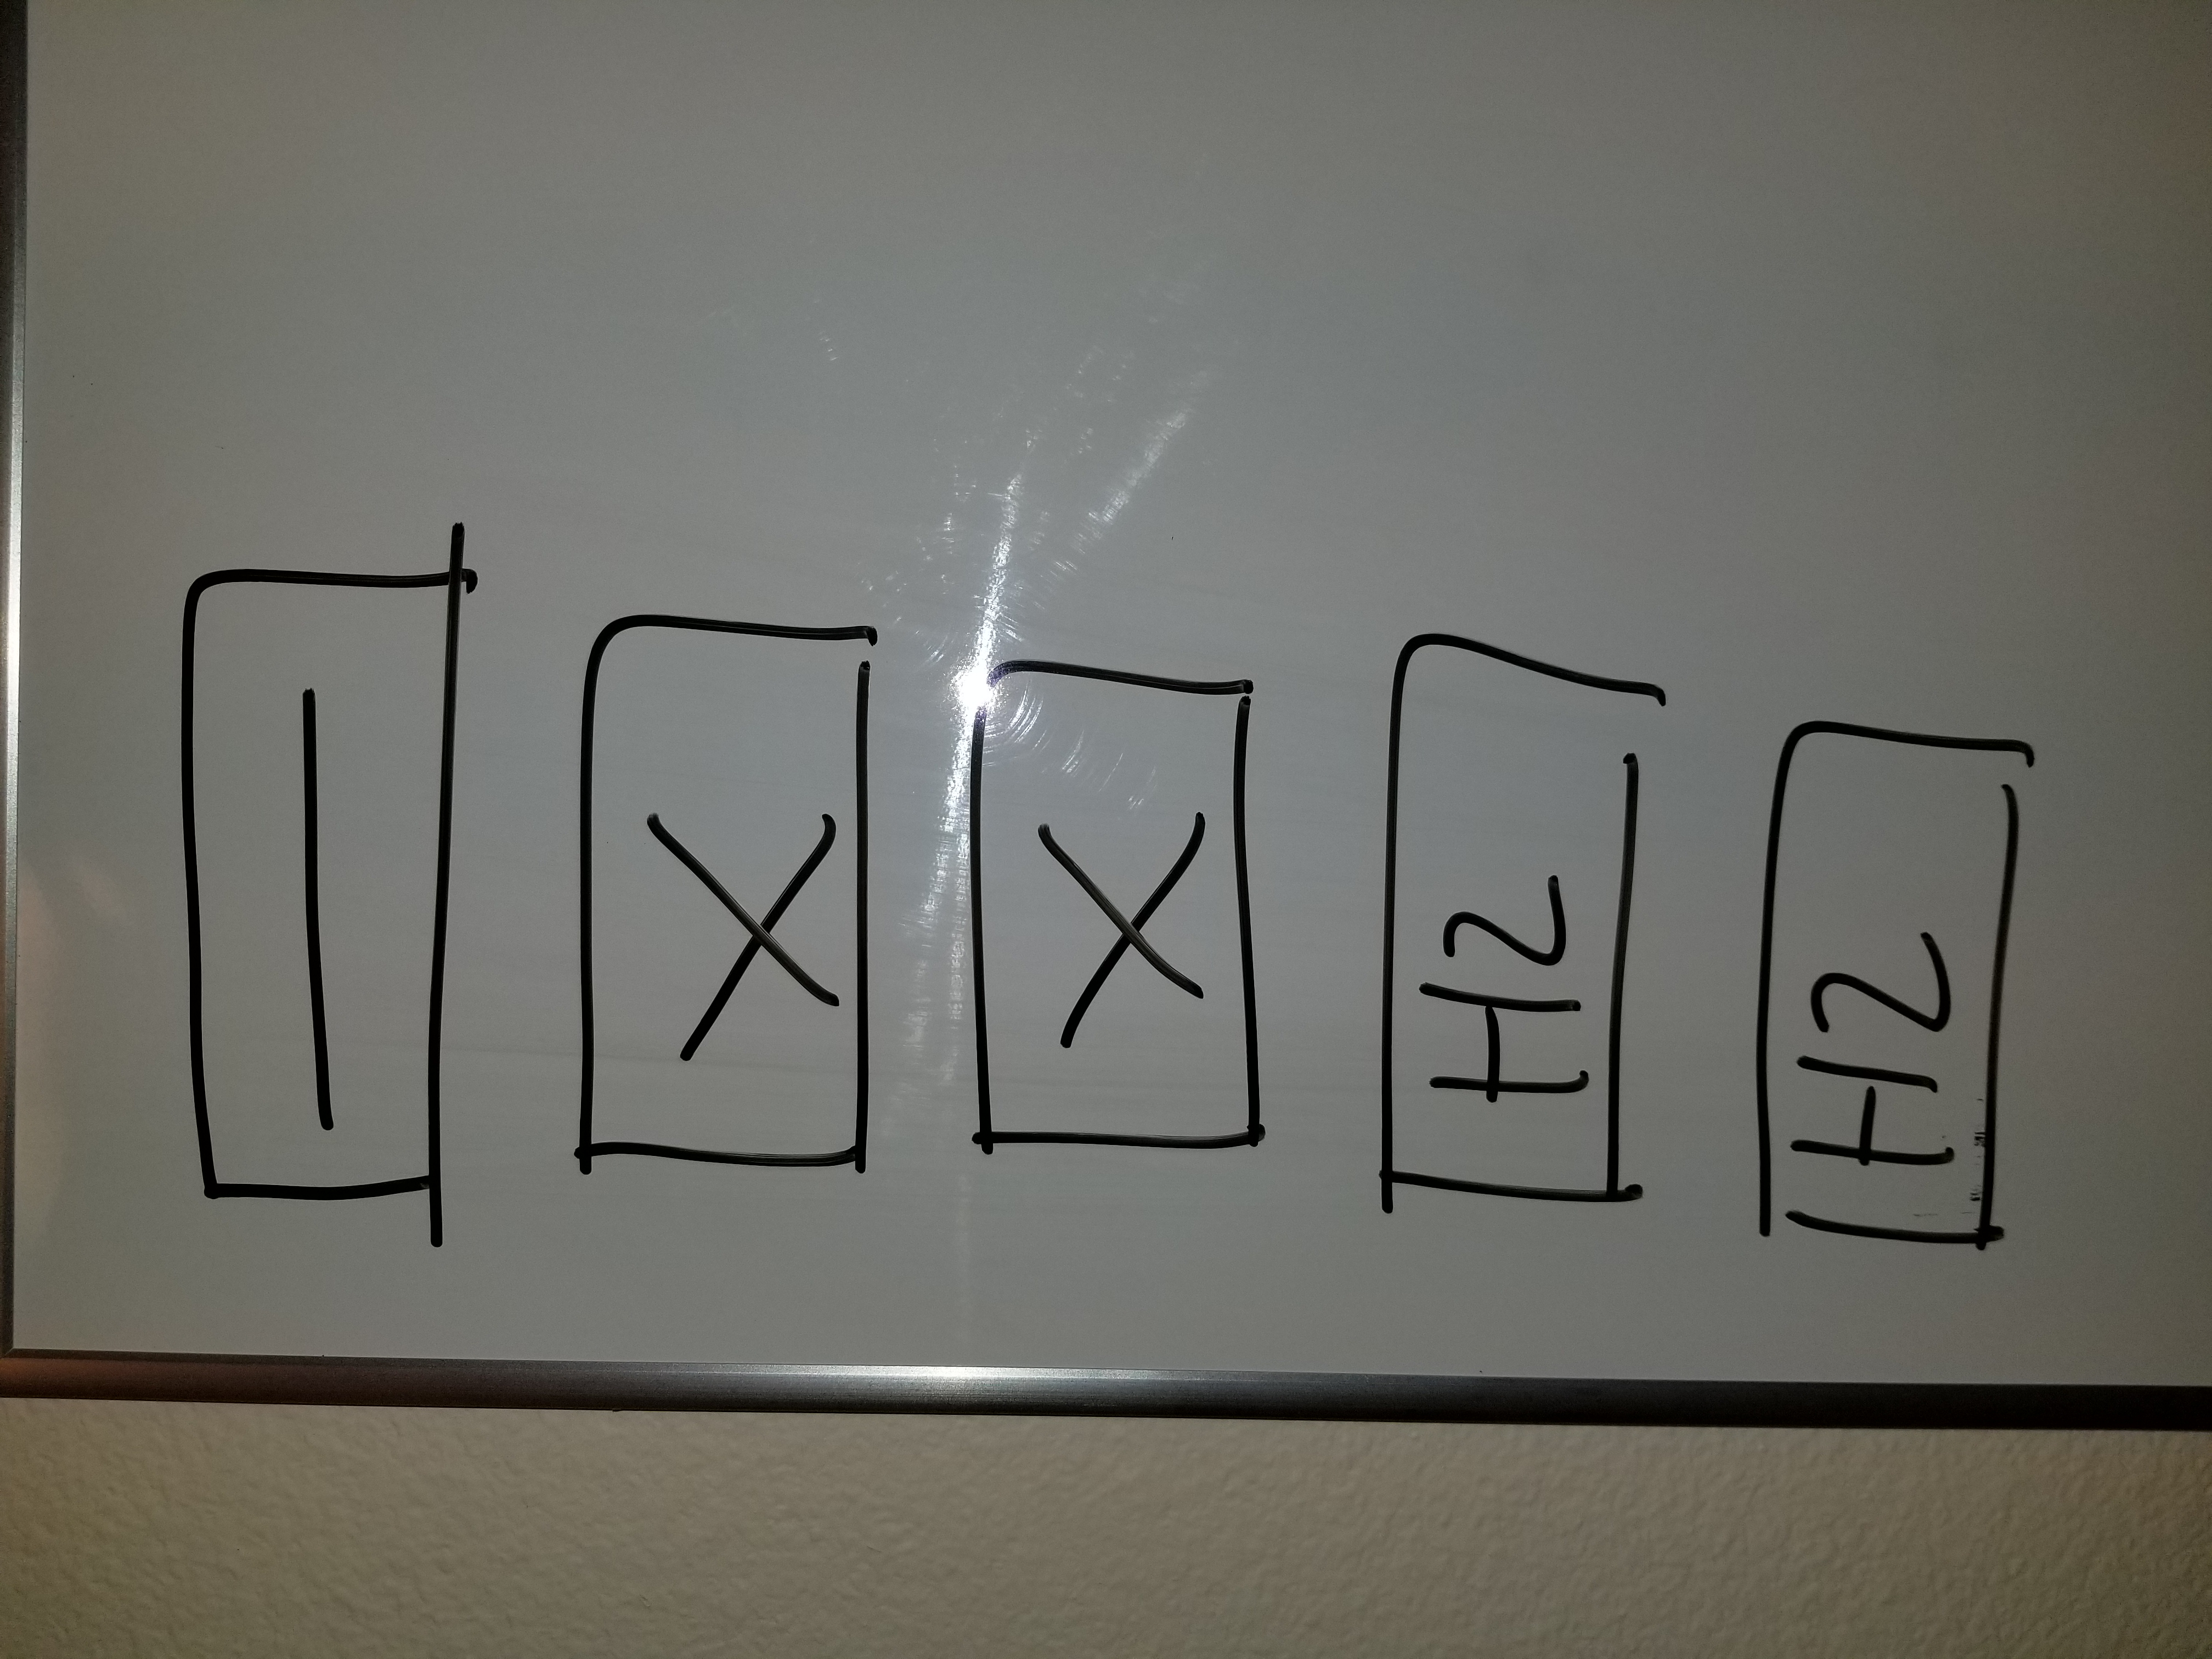 X
X
H2
H2